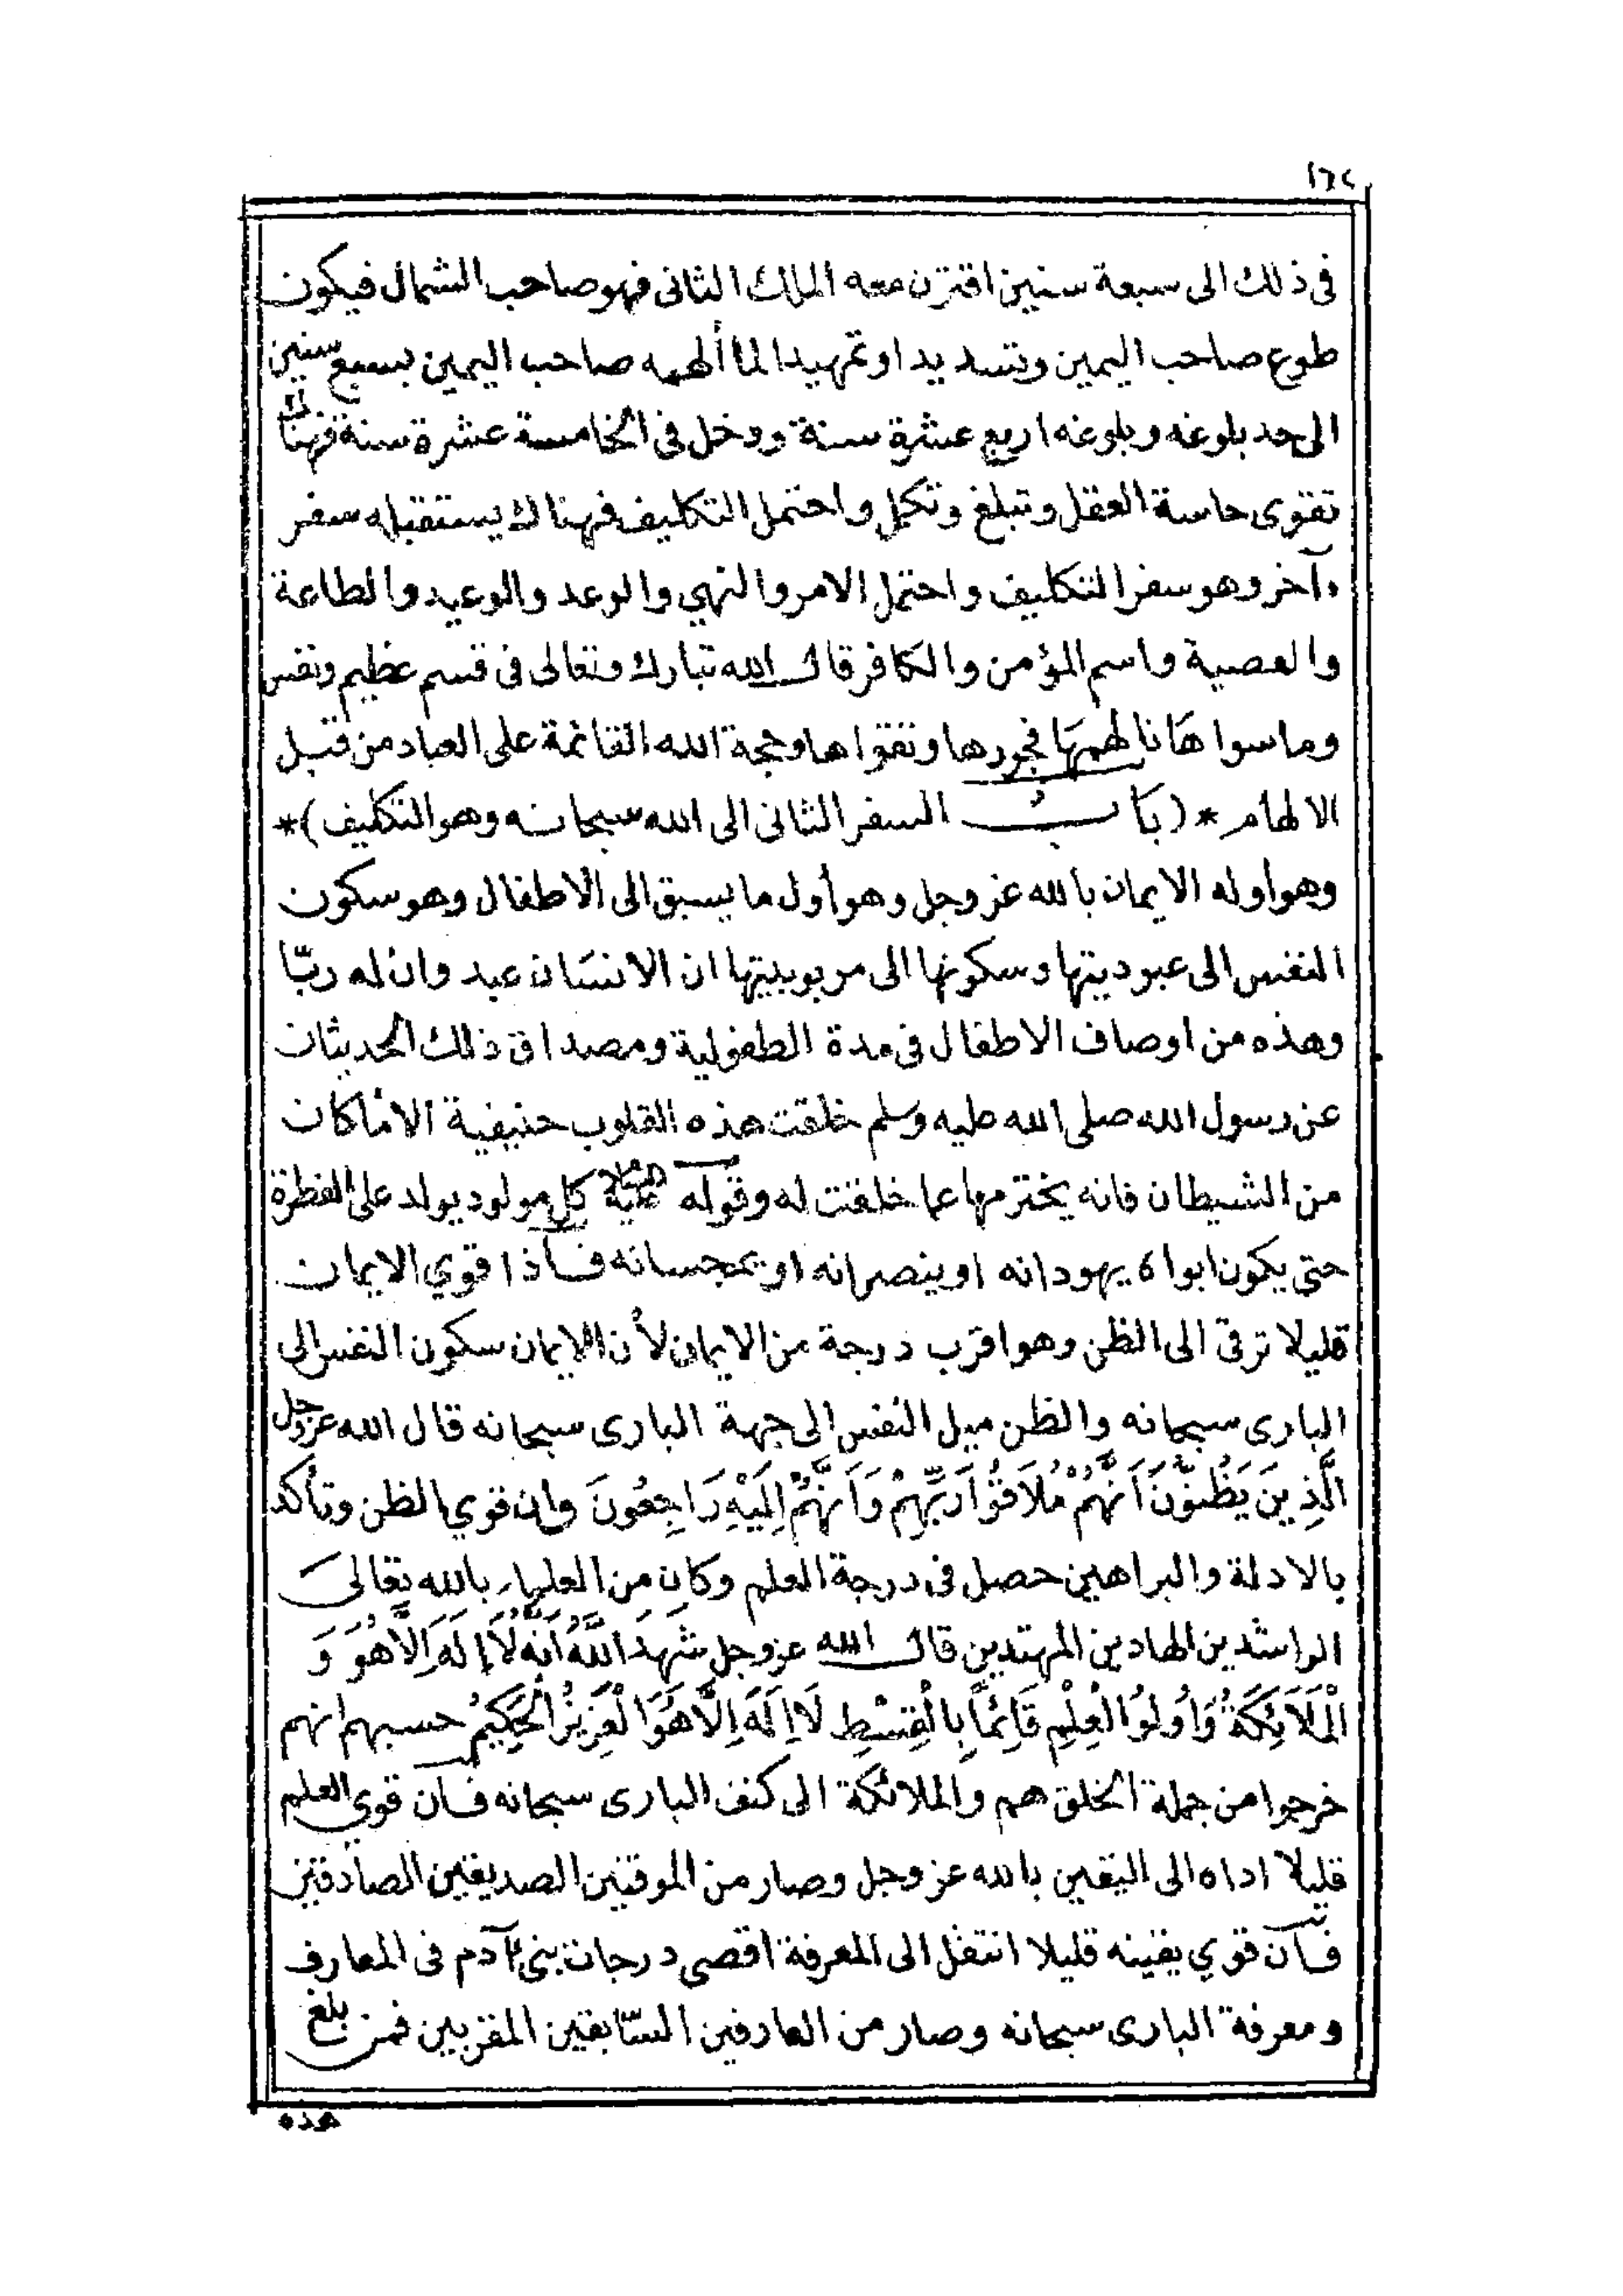 ١٦٤
فى ذلك الى سبعة سنين اقترن معه الملك الثانى فهو صاحب الشمال فيكون
طوع صاحب اليمين وتسديدا وتمهيدا لما ألهمه صاحب اليمين بسبع سنين
الى حد بلوغه وبلوغه اربع عشرة سنة ودخل فى الخامسة عشرة سنة فهناك
تقوى حاسة العقل وتبلغ وتكمل واحتمل التكليف فهناك يستقبله سفر
ءآخر وهو سفر التكليف واحتمل الامر والنهي والوعد والوعيد والطاعة
والعصية واسم المؤمن والكافر قال الله تبارك وتعالى فى قسم عظيم ونفس
وما سواها فالهمها فجورها وتقواها وحجة الله القائمة على العباد من قبل
الالهام * (باب السفر الثانى الى الله سبحانه وهو التكليف) *
وهو أوله الايمان بالله عز وجل وهو أول ما يسبق الى الاطفال وهو سكون
النفس الى عبوديتها وسكونها الى مربوبيتها ان الانسان عبد وان له ربّا
وهذه من اوصاف الاطفال فى مدة الطفولية ومصداق ذلك الحديثان
عن رسول الله صلى الله عليه وسلم خلقت هذه القلوب حنيفية الا ما كان
من الشيطان فانه يخترمها عما خلقت له وقوله عليه السلام كل مولود يولد على الفطرة
حتى يكون ابواه يهودانه او ينصرانه او يمجسانه فاذا قوي الايمان
قليلا ترقى الى الظن وهو اقرب درجة من الايمان لأن الايمان سكون النفس الى
البارى سبحانه والظن ميل النفس الى جهة البارى سبحانه قال الله عز وجل
الَّذِينَ يَظُنُّونَ اَنَّهُمْ مُلَاقُوا رَبِّهِمْ وَاَنَّهُمْ اِلَيْهِ رَاجِعُونَ وان قوي الظن وتأكد
بالادلة والبراهين حصل فى درجة العلم وكان من العلماء بالله تعالى
الراشدين الهادين المهتدين قال الله عز وجل شَهِدَ اللَّهُ اَنَّهُ لَا إِلَهَ اِلَّا هُوَ وَ
الْمَلَائِكَةُ وَاُولُوا الْعِلْمِ قَائِمًا بِالْقِسْطِ لَا اِلَهَ اِلَّا هُوَ الْعَزِيزُ الْحَكِيمُ حسبهم انهم
خرجوا من جملة الخلق هم والملائكة الى كنف البارى سبحانه فان قوي العلم
قليلا اداه الى اليقين بالله عز وجل وصار من الموقنين الصديقين الصادقين
فان قوي يقينه قليلا انتقل الى المعرفة اقصى درجات بنى ءآدم فى المعارف
ومعرفة البارى سبحانه وصار من العارفين السّابقين المقربين فمن بلغ
هذه